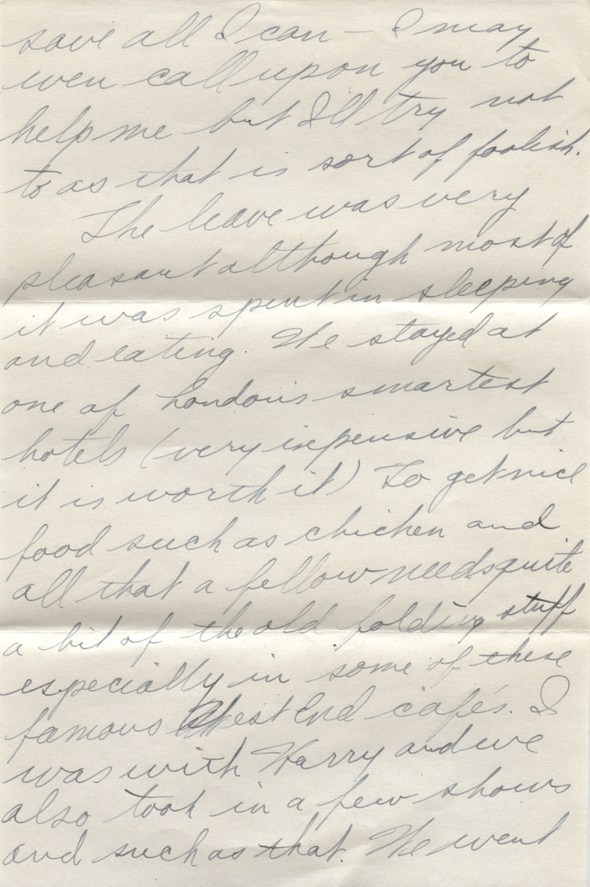 save all I can - I may
even call upon you to
help me but I'll try not
to as that is sort of foolish.
The leave was very
pleasant although most of
it was spent in sleeping
and eating. We stayed at
one of London's smartest
hotels (very expensive but
it is worth it) To get nice
food such as chicken and
all that a fellow needs quite
a bit of the old folding stuff
especially in some of these
famous West End cafés. I
was with Harry and we
also took in a few shows
and such as that. We went